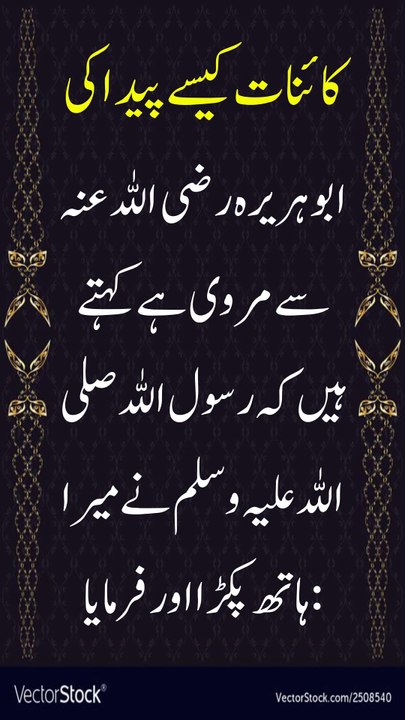 کائنات کیسے پیدا کی
ابو ہریرہ رضی اللہ عنہ
سے مروی ہے کہتے
ہیں کہ رسول اللہ صلی
اللہ علیہ وسلم نے میرا
ہاتھ پکڑا اور فرمایا:
VectorStock®
VectorStock.com/2508540